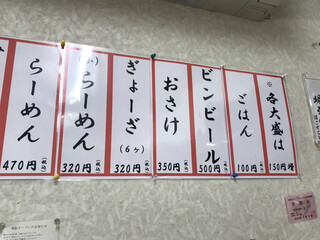 ※各大盛は
150円増
ごはん
100円(税込)
ビンビール
500円(税込)
おさけ
350円(税込)
ぎょーざ
(6ヶ)
320円(税込)
(小)らーめん
320円(税込)
らーめん
470円(税込)